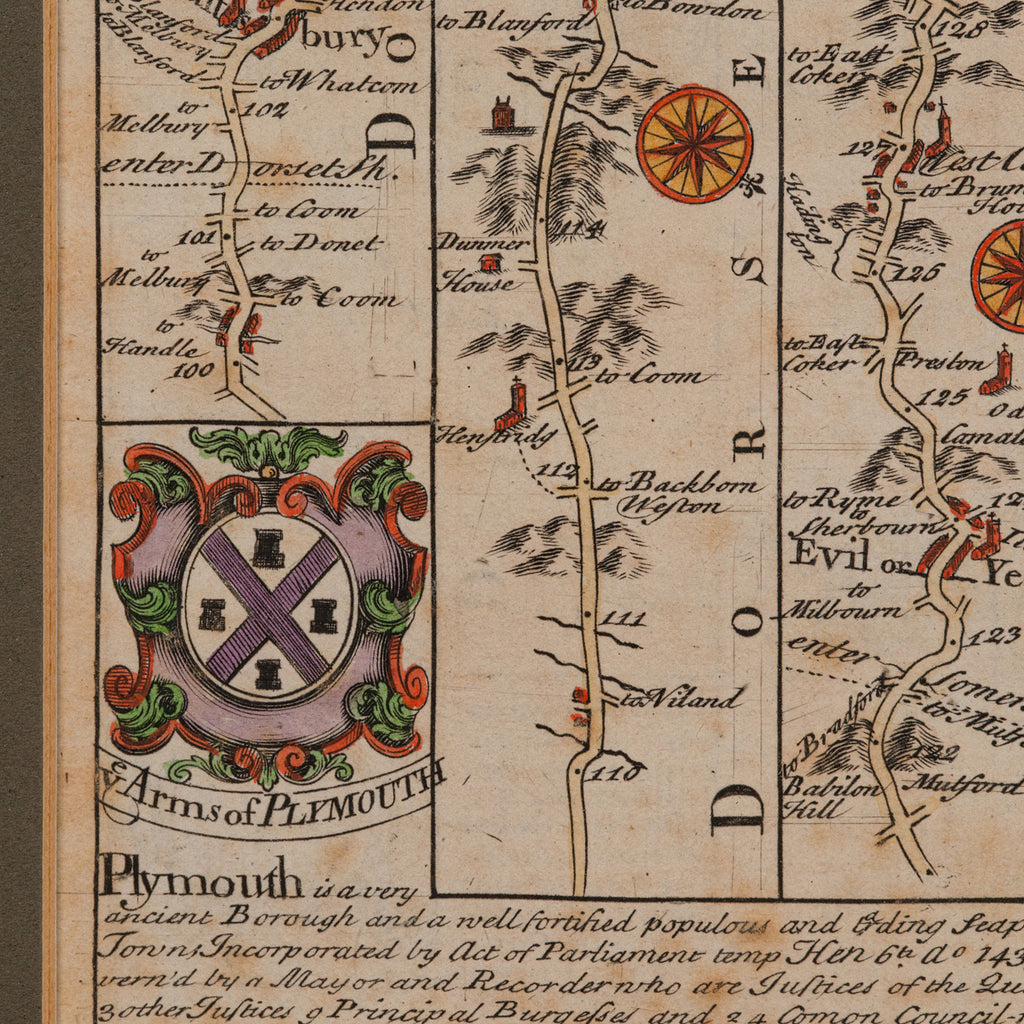 Hendon
bury
Melbury
Blanford
to Whatcom
102
to
Melbury
enter Dorset Sh.
to Coom
101
to Donet
to
Melbury
to Coom
to
Handle
100
to Blanford
to Bowdon
D O R S E
D O
114
Dunmer
House
113
to Coom
Henstridg
112
to Backborn
Weston
111
to Niland
110
128
to East
Coker
127
West C
to Brum
Hou
Hading
ton
126
to East
Coker
Preston
125
Od
Camal
to Ryme
to
Sherbourn
12
Evil or Ye
to
Milbourn
123
enter
Somer
to Bradford
to Mut
122
Babilon
Hill
Mutford
ye Arms of PLYMOUTH
Plymouth is a very
ancient Borough and a well fortified populous and trading Seap
Town; Incorporated by Act of Parliament temp Hen 6th Ao 143
vern'd by a Mayor and Recorder who are Justices of the Qu
3 other Justices 9 Principal Burgesses and 24 Comon Council-